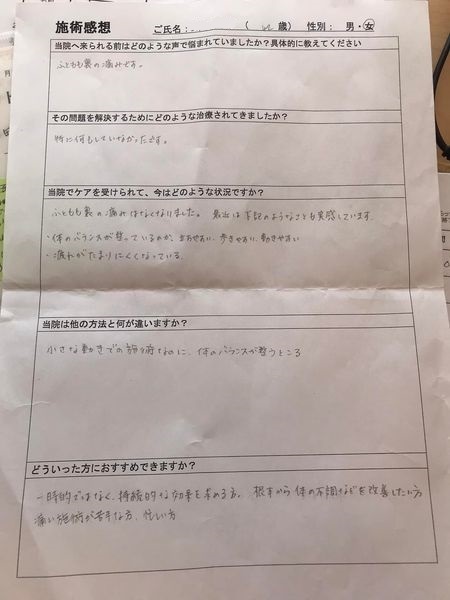 施術感想 ご氏名: ( 歳) 性別: 男・女
当院へ来られる前はどのような声で悩まれていましたか?具体的に教えてください
ふともも裏の痛みです。
その問題を解決するためにどのような治療されてきましたか?
特に何もしていなかったです。
当院でケアを受けられて、今はどのような状況ですか?
ふともも裏の痛みはなくなりました。最近は下記のようなことも実感しています。
・体のバランスが整っているのか、立ちやすい、歩きやすい、動きやすい
・疲れがたまりにくくなっている。
当院は他の方法と何が違いますか?
小さな動きでの施術なのに、体のバランスが整うところ
どういった方におすすめできますか?
一時的ではなく、持続的な効果を求める方。根本から体の不調などを改善したい方
痛い施術が苦手な方、忙しい方